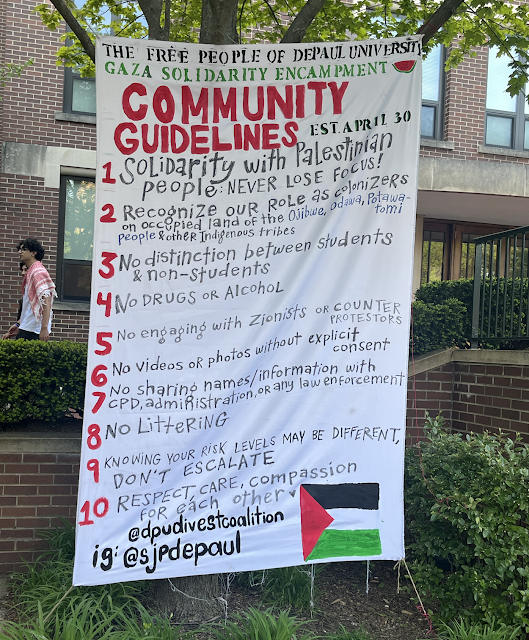 THE FREE PEOPLE OF DEPAUL UNIVERSITY
GAZA SOLIDARITY ENCAMPMENT
COMMUNITY
GUIDELINES EST. APRIL 30
1 Solidarity with Palestinian
people: NEVER LOSE FOCUS!
2 Recognize our Role as colonizers
on occupied land of the Ojibwe, Odawa, Potawa-
tomi
people & other Indigenous tribes
3 No distinction between students
& non-students
4 No DRUGS or Alcohol
5 No engaging with Zionists or COUNTER
PROTESTORS
6 No Videos or photos without explicit
consent
7 No sharing names/information with
CPD, administration, or any law enforcement
8 No Littering
9 KNOWING YOUR RISK LEVELS MAY BE DIFFERENT,
DON'T ESCALATE
10 RESPECT, CARE, compassion
for each other
@dpudivestcoalition
ig: @sjpdepaul